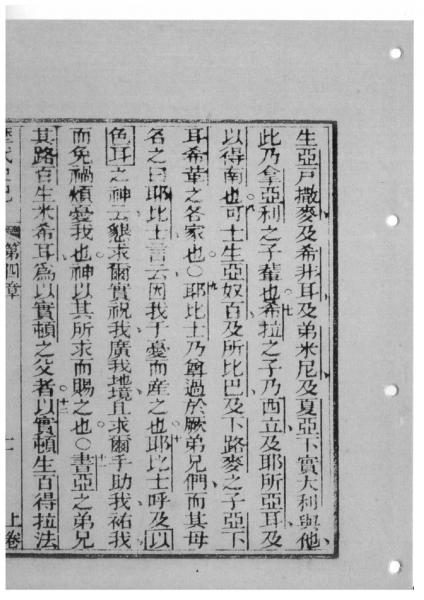 生亞戶撒麥及希非耳及弟米尼及夏亞下實大利與他
此乃拿亞利之子輩也七希拉之子乃西立及耶所亞耳及
以得南也八可士生亞奴百及所比巴及下路麥之子亞下
耳希華之各家也○九耶比士乃尊過於厥弟兄們而其母
名之曰耶比士言云因我于憂而產之也十耶比士呼及以
色耳之神云懇求爾實祝我廣我地境且求爾手助我祐我
而免禍煩憂我也神以其所求而賜之也○十一書亞之弟兄
其路百生米希耳為以實頓之父者十二以實頓生百得拉法
歷代史記 第四章 二 上卷